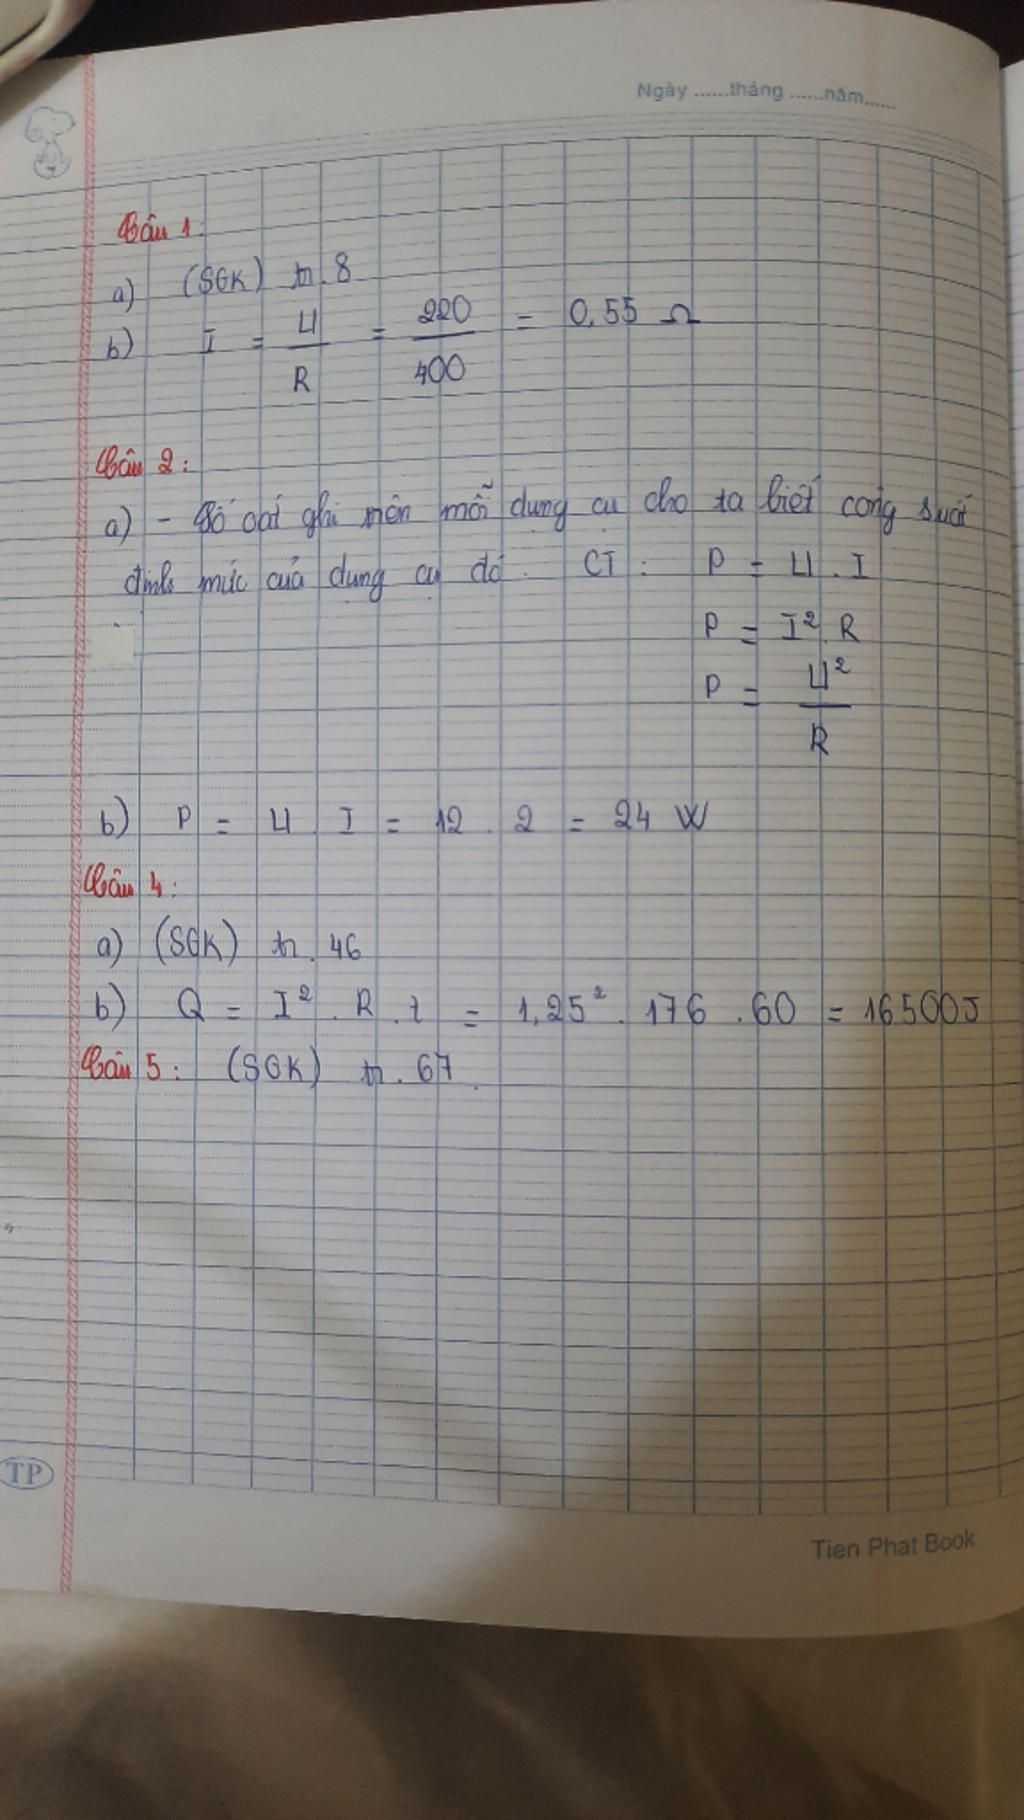 Ngày ......tháng ......năm......
Câu 1:
a) (SGK) tr. 8
b) I = U / R = 220 / 400 = 0,55 Ω
Câu 2:
a) - Số oát ghi trên mỗi dụng cụ cho ta biết công suất
định mức của dụng cụ đó. CT: P = U . I
P = I². R
P = U² / R
b) P = U . I = 12 . 2 = 24 W
Câu 4:
a) (SGK) tr. 46
b) Q = I² . R . t = 1,25² . 176 . 60 = 16500J
Câu 5: (SGK) tr. 67.
TP
Tien Phat Book